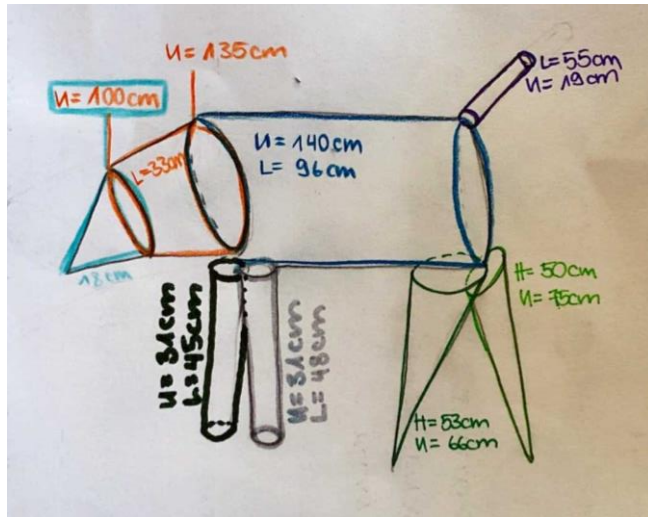 U = 135cm
U = 100cm
L = 33cm
18cm
U = 140cm
L = 96cm
L = 55cm
U = 19cm
U = 31cm
L = 45cm
U = 31cm
L = 48cm
H = 50cm
U = 75cm
H = 53cm
U = 66cm